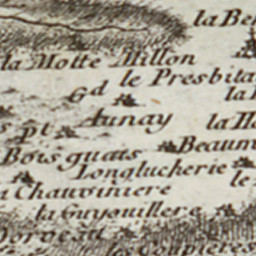 la Be
la Motte Millon
le Presbita
Gd Aunay
la
pt
la
Bois guais
Beaum
Longlucherie
le
Chauviniere
la Guyouillere
Dorveau
les Coupletes